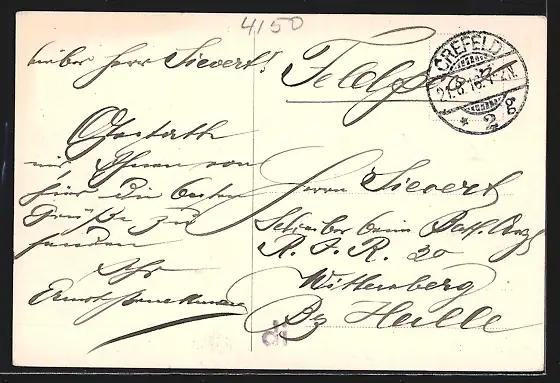 4/50
Lieber Herr Sievert!
Gestatten
mir, Ihnen von
hier die besten
Grüße zu
senden
Ihr
Ernst
Feldp
CREFELD
21.6.16. 1-2N.
* 2 g
Herrn Sievert
Schreiber beim Batl.
R. I. R. 20
Wittenberg
Bz Halle
di